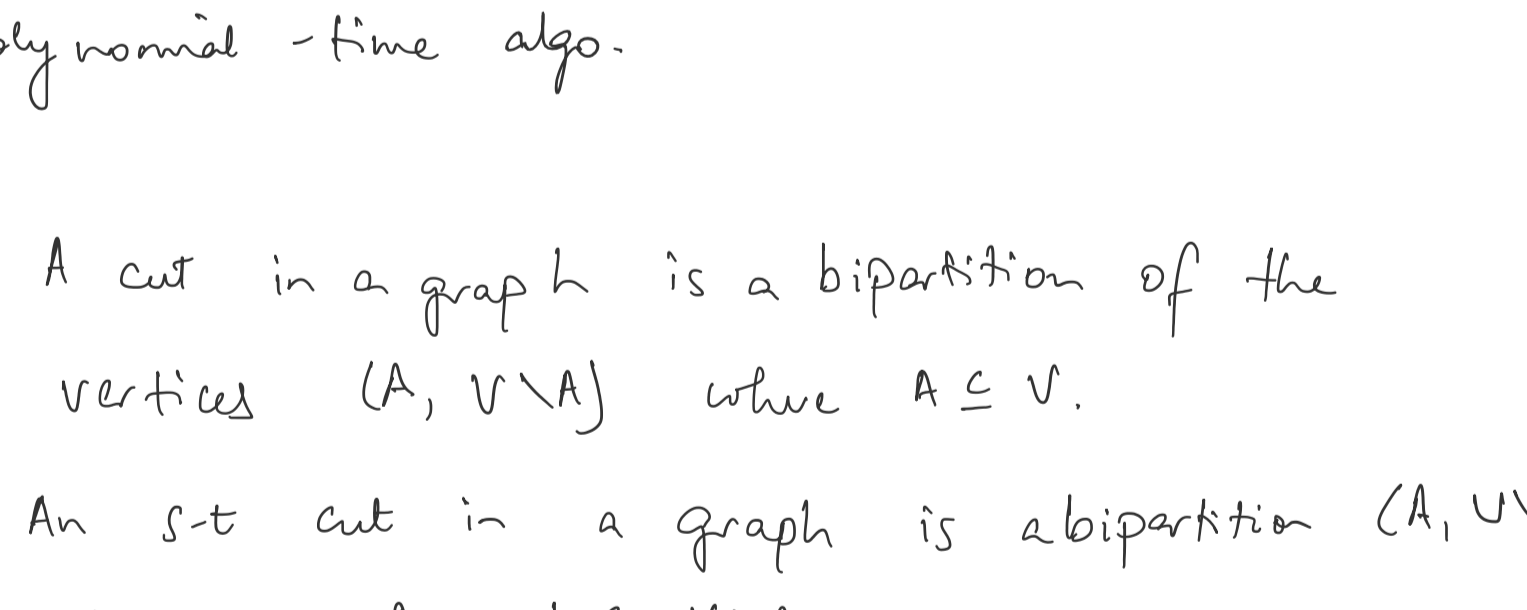 olynomial - time algo.
A cut in a graph is a bipartition of the
vertices (A, V\A) where A ⊆ V.
An s-t cut in a graph is a bipartition (A, V\